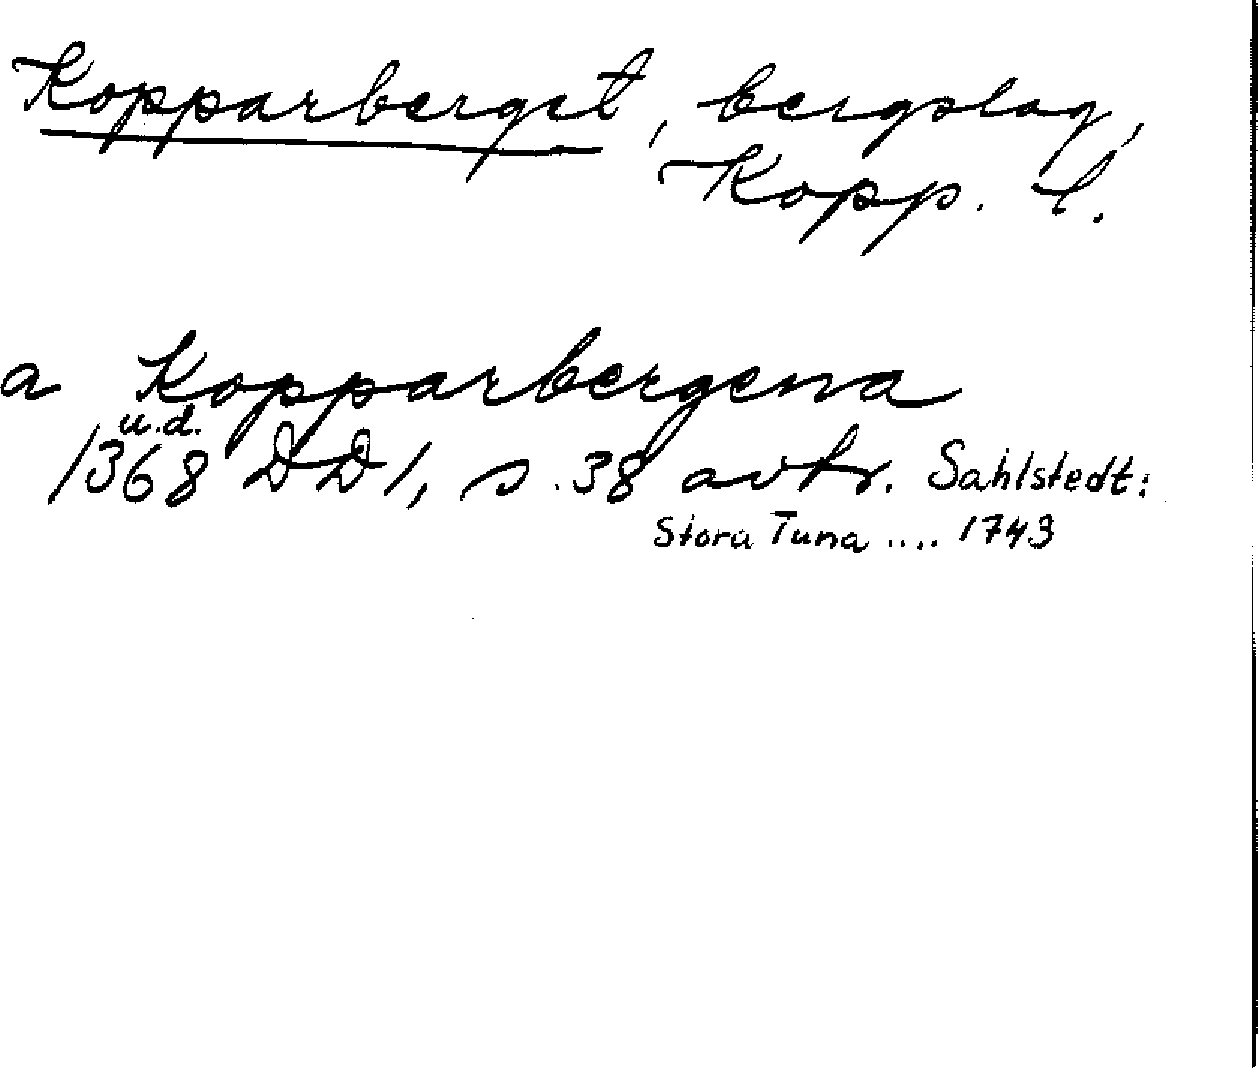 Kopparberget, bergslag,
Kopp. l.
a Kopparbergena
u.d.
1368 DD1, s. 38 avtr. Sahlstedt:
Stora Tuna .... 1743